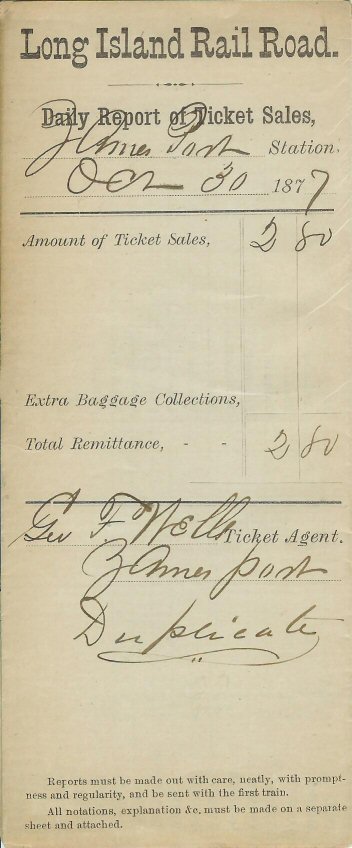 Long Island Rail Road.
Daily Report of Ticket Sales,
James Port Station,
Oct 30 1877
Amount of Ticket Sales, 2 80
Extra Baggage Collections,
Total Remittance, - - 2 80
Geo F. Wells Ticket Agent.
James port
Duplicate
Reports must be made out with care, neatly, with prompt-
ness and regularity, and be sent with the first train.
All notations, explanation &c. must be made on a separate
sheet and attached.